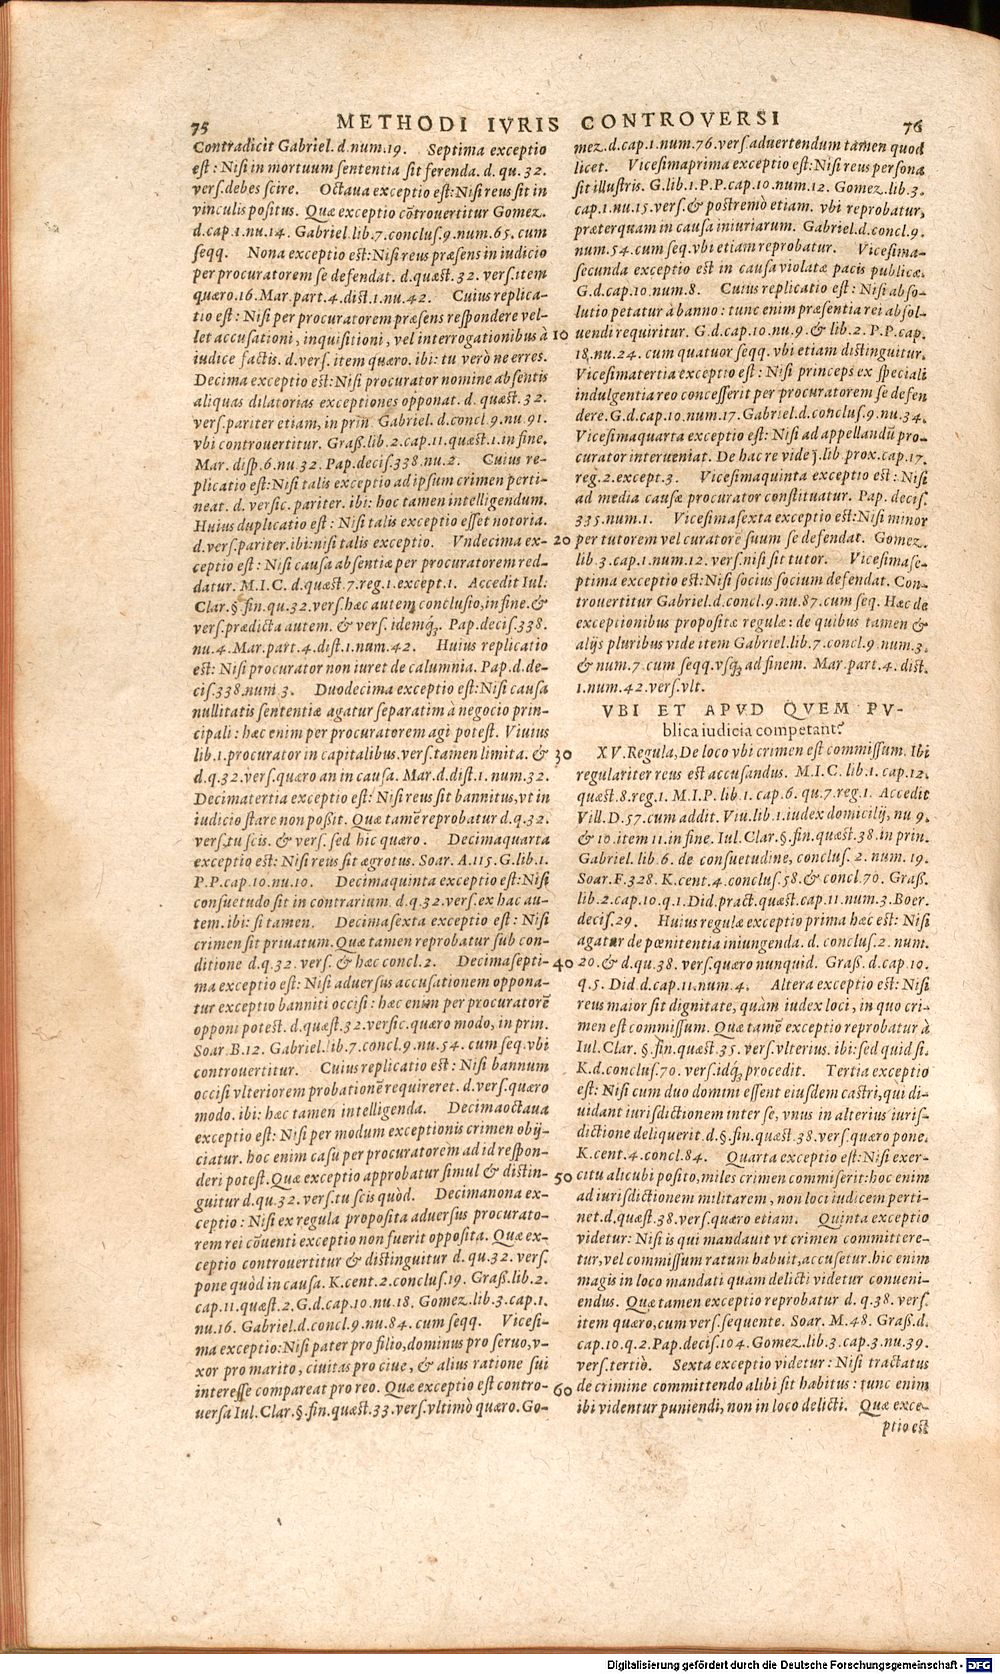 75 METHODI IVRIS CONTROVERSI 76
Contradicit Gabriel. d. num. 19. Septima exceptio
est: Nisi in mortuum sententia sit ferenda. d. qu. 32.
vers. debes scire. Octaua exceptio est: Nisi reus sit in
vinculis positus. Quæ exceptio cõtrouertitur Gomez.
d. cap. 1. nu. 14. Gabriel. lib. 7. conclus. 9. num. 65. cum
seqq. Nona exceptio est: Nisi reus præsens in iudicio
per procuratorem se defendat. d. quæst. 32. vers. item
quæro. 16. Mar. part. 4. dist. 1. nu. 42. Cuius replica-
tio est: Nisi per procuratorem præsens respondere vel-
let accusationi, inquisitioni, vel interrogationibus à 10
iudice factis. d. vers. item quæro. ibi: tu verò ne erres.
Decima exceptio est: Nisi procurator nomine absentis
aliquas dilatorias exceptiones opponat. d. quæst. 32.
vers. pariter etiam, in prin. Gabriel. d. concl. 9. nu. 91.
vbi controuertitur. Graß. lib. 2. cap. 11. quæst. 1. in fine.
Mar. disp. 6. nu. 32. Pap. decis. 338. nu. 2. Cuius re-
plicatio est: Nisi talis exceptio ad ipsum crimen perti-
neat. d. versic. pariter. ibi: hoc tamen intelligendum.
Huius duplicatio est: Nisi talis exceptio esset notoria.
d. vers. pariter. ibi: nisi talis exceptio. Vndecima ex- 20
ceptio est: Nisi causa absentiæ per procuratorem red-
datur. M. I. C. d. quæst. 7. reg. 1. except. 1. Accedit Iul:
Clar. §. fin. qu. 32. vers. hæc autem conclusio, in fine. &
vers. prædicta autem. & vers. idemq́;. Pap. decis. 338.
nu. 4. Mar. part. 4. dist. 1. num. 42. Huius replicatio
est: Nisi procurator non iuret de calumnia. Pap. d. de-
cis. 338. num. 3. Duodecima exceptio est: Nisi causa
nullitatis sententiæ agatur separatim à negocio prin-
cipali: hæc enim per procuratorem agi potest. Viuius
lib. 1. procurator in capitalibus. vers. tamen limita. & 30
d. q. 32. vers. quæro an in causa. Mar. d. dist. 1. num. 32.
Decimatertia exceptio est: Nisi reus sit bannitus, vt in
iudicio stare non poßit. Quæ tamẽ reprobatur d. q. 32.
vers. tu scis. & vers. sed hic quæro. Decimaquarta
exceptio est: Nisi reus sit ægrotus. Soar. A. 115. G. lib. 1.
P. P. cap. 10. nu. 10. Decimaquinta exceptio est: Nisi
consuetudo sit in contrarium. d. q. 32. vers. ex hac au-
tem. ibi: si tamen. Decimasexta exceptio est: Nisi
crimen sit priuatum. Quæ tamen reprobatur sub con-
ditione d. q. 32. vers. & hæc concl. 2. Decimasepti- 40
ma exceptio est: Nisi aduersus accusationem oppona-
tur exceptio banniti occisi: hæc enim per procuratorẽ
opponi potest. d. quæst. 32. versic. quæro modo, in prin.
Soar. B. 12. Gabriel. lib. 7. concl. 9. nu. 54. cum seq. vbi
controuertitur. Cuius replicatio est: Nisi bannum
occisi vlteriorem probationẽ requireret. d. vers. quæro
modo. ibi: hæc tamen intelligenda. Decimaoctaua
exceptio est: Nisi per modum exceptionis crimen obij-
ciatur. hoc enim casu per procuratorem ad id respon-
deri potest. Quæ exceptio approbatur simul & distin- 50
guitur d. qu. 32. vers. tu scis quòd. Decimanona ex-
ceptio: Nisi ex regula proposita aduersus procurato-
rem rei cõuenti exceptio non fuerit opposita. Quæ ex-
ceptio controuertitur & distinguitur d. qu. 32. vers.
pone quòd in causa. K. cent. 2. conclus. 19. Graß. lib. 2.
cap. 11. quæst. 2. G. d. cap. 10. nu. 18. Gomez. lib. 3. cap. 1.
nu. 16. Gabriel. d. concl. 9. nu. 84. cum seqq. Vicesi-
ma exceptio: Nisi pater pro filio, dominus pro seruo, v-
xor pro marito, ciuitas pro ciue, & alius ratione sui
interesse compareat pro reo. Quæ exceptio est contro- 60
uersa Iul. Clar. §. fin. quæst. 33. vers. vltimò quæro. Go-
mez. d. cap. 1. num. 76. vers. aduertendum tamen quod
licet. Vicesimaprima exceptio est: Nisi reus persona
sit illustris. G. lib. 1. P. P. cap. 10. num. 12. Gomez. lib. 3.
cap. 1. nu. 15. vers. & postremò etiam. vbi reprobatur,
præterquam in causa iniuriarum. Gabriel. d. concl. 9.
num. 54. cum seq. vbi etiam reprobatur. Vicesima-
secunda exceptio est in causa violatæ pacis publicæ.
G. d. cap. 10. num. 8. Cuius replicatio est: Nisi abso-
lutio petatur à banno: tunc enim præsentia rei absol-
uendi requiritur. G. d. cap. 10. nu. 9. & lib. 2. P. P. cap.
18. nu. 24. cum quatuor seqq. vbi etiam distinguitur.
Vicesimatertia exceptio est: Nisi princeps ex speciali
indulgentia reo concesserit per procuratorem se defen
dere. G. d. cap. 10. num. 17. Gabriel. d. conclus. 9. nu. 34.
Vicesimaquarta exceptio est: Nisi ad appellandũ pro-
curator interueniat. De hac re vide j. lib. prox. cap. 17.
reg. 2. except. 3. Vicesimaquinta exceptio est: Nisi
ad media causæ procurator constituatur. Pap. decis.
335. num. 1. Vicesimasexta exceptio est: Nisi minor
per tutorem vel curatorẽ suum se defendat. Gomez.
lib. 3. cap. 1. num. 12. vers. nisi sit tutor. Vicesimase-
ptima exceptio est: Nisi socius socium defendat. Con-
trouertitur Gabriel. d. concl. 9. nu. 87. cum seq. Hæc de
exceptionibus propositæ regulæ: de quibus tamen &
alijs pluribus vide item Gabriel. lib. 7. concl. 9. num. 3.
& num. 7. cum seqq. vsq́; ad finem. Mar. part. 4. dist.
1. num. 42. vers. vlt.
VBI ET APVD QVEM PV-
blica iudicia competant?
XV. Regula, De loco vbi crimen est commissum. Ibi
regulariter reus est accusandus. M. I. C. lib. 1. cap. 12.
quæst. 8. reg. 1. M. I. P. lib. 1. cap. 6. qu. 7. reg. 1. Accedit
Vill. D. 57. cum addit. Viu. lib. 1. iudex domicilij, nu 9.
& 10. item 11. in fine. Iul. Clar. §. fin. quæst. 38. in prin.
Gabriel. lib. 6. de consuetudine, conclus. 2. num. 19.
Soar. F. 328. K. cent. 4. conclus. 58. & concl. 70. Graß.
lib. 2. cap. 10. q. 1. Did. pract. quæst. cap. 11. num. 3. Boer.
decis. 29. Huius regulæ exceptio prima hæc est: Nisi
agatur de pœnitentia iniungenda. d. conclus. 2. num.
20. & d. qu. 38. vers. quæro nunquid. Graß. d. cap. 10.
q. 5. Did. d. cap. 11. num. 4. Altera exceptio est: Nisi
reus maior sit dignitate, quàm iudex loci, in quo cri-
men est commissum. Quæ tamẽ exceptio reprobatur à
Iul. Clar. §. fin. quæst. 35. vers. vlterius. ibi: sed quid si.
K. d. conclus. 70. vers. idq́; procedit. Tertia exceptio
est: Nisi cum duo domini essent eiusdem castri, qui di-
uidant iurisdictionem inter se, vnus in alterius iuris-
dictione deliquerit. d. §. fin. quæst. 38. vers. quæro pone.
K. cent. 4. concl. 84. Quarta exceptio est: Nisi exer-
citu alicubi posito, miles crimen commiserit: hoc enim
ad iurisdictionem militarem, non loci iudicem perti-
net. d. quæst. 38. vers. quæro etiam. Quinta exceptio
videtur: Nisi is qui mandauit vt crimen committere-
tur, vel commissum ratum habuit, accusetur. hic enim
magis in loco mandati quam delicti videtur conueni-
endus. Quæ tamen exceptio reprobatur d. q. 38. vers.
item quæro, cum vers. sequente. Soar. M. 48. Graß. d.
cap. 10. q. 2. Pap. decis. 104. Gomez. lib. 3. cap. 3. nu. 39.
vers. tertiò. Sexta exceptio videtur: Nisi tractatus
de crimine committendo alibi sit habitus: tunc enim
ibi videntur puniendi, non in loco delicti. Quæ exce-
ptio est
Digitalisierung gefördert durch die Deutsche Forschungsgemeinschaft - DFG